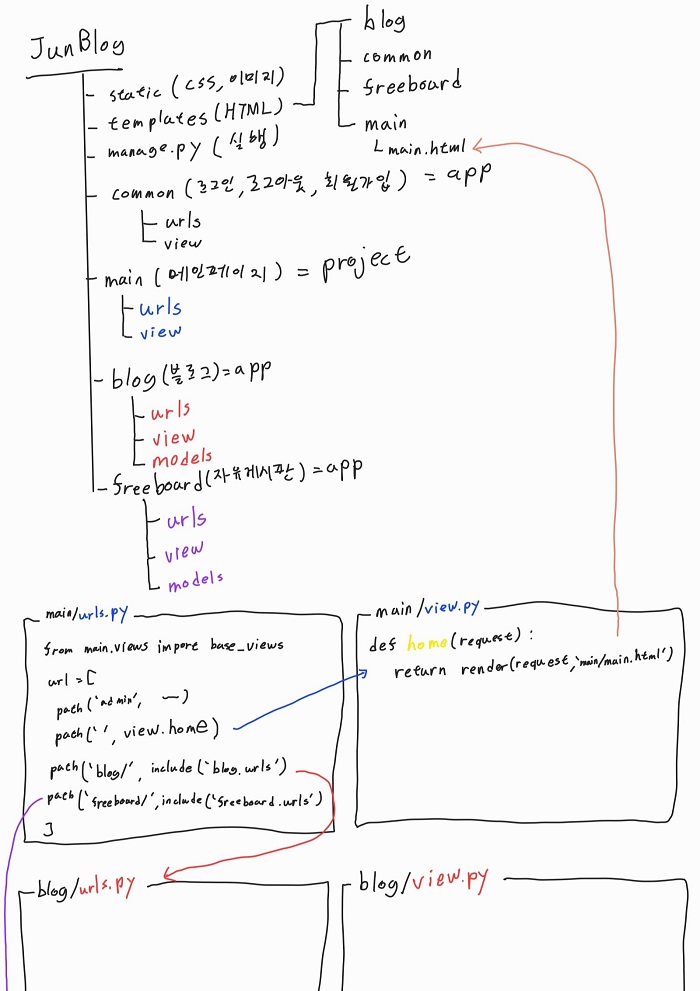 JunBlog
static (css, 이미지)
templates (HTML)
manage.py (실행)
blog
common
freeboard
main
main.html
common (로그인, 로그아웃, 회원가입) = app
urls
view
main (메인페이지) = project
urls
view
blog (블로그) = app
urls
view
models
freeboard (자유게시판) = app
urls
view
models
main/urls.py
from main.views import base_views
url = [
path('admin', —)
path('', view.home)
path('blog/', include('blog.urls')
path('freeboard/', include('freeboard.urls')
]
main/view.py
def home(request):
return render(request, 'main/main.html')
blog/urls.py
blog/view.py